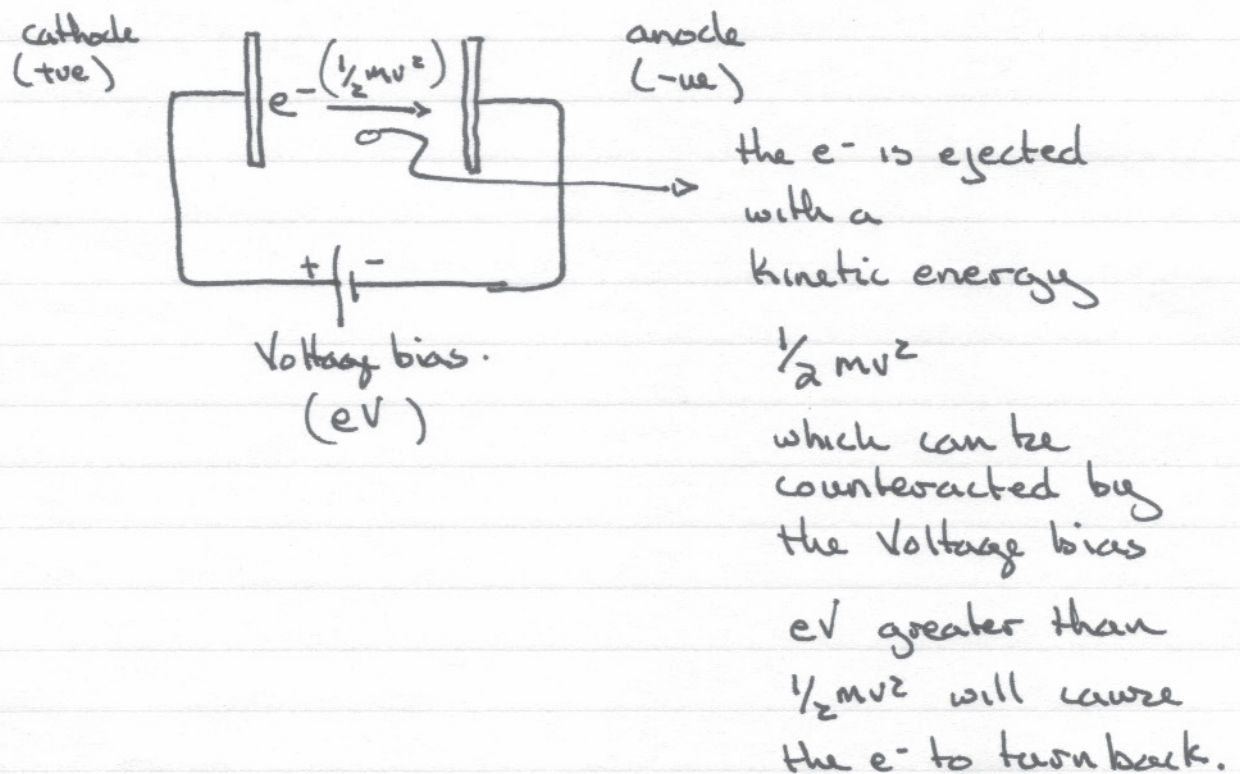 cathode
(+ve)
e⁻ (½mv²)
+ -
Voltage bias.
(eV)
anode
(-ve)
the e⁻ is ejected
with a
kinetic energy
½ mv²
which can be
counteracted by
the Voltage bias
eV greater than
½mv² will cause
the e⁻ to turn back.